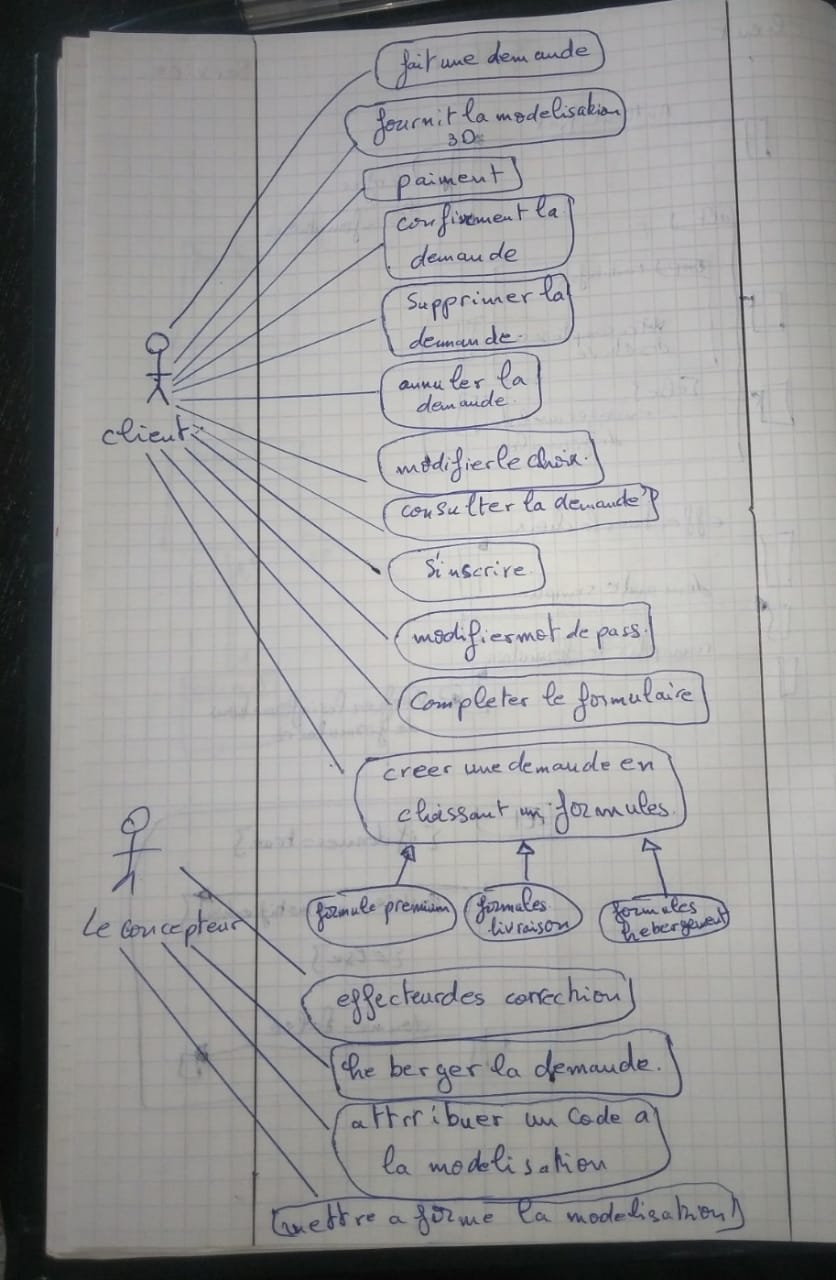 fait une demande
fournit la modelisation
3D
paiment
confirement la
demande
Supprimer la
demande.
annuler la
demande.
client
modifier le choix.
consulter la demande
S'inscrire
modifier mot de pass.
Completer le formulaire
creer une demande en
choissant un formules.
formule premium
formules
livraison
formules
hebergement
Le concepteur
effecteur des correchion
he berger la demande.
attrribuer un Code a
la modelisation
mettre a forme la modelisation